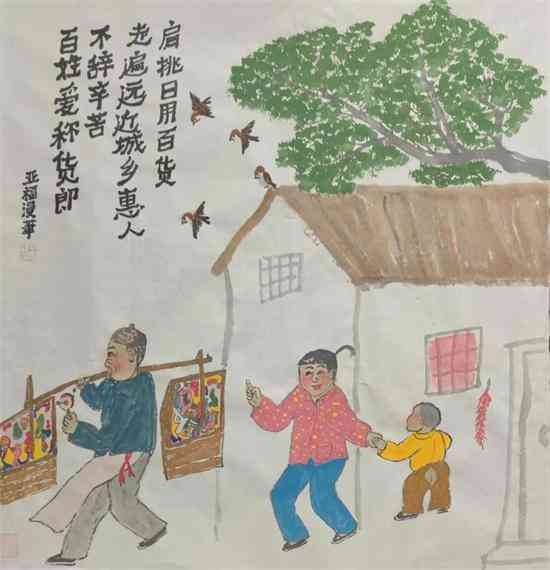 肩挑日用百货
走遍远近城乡惠人
不辞辛苦
百姓爱称货郎
亚福漫